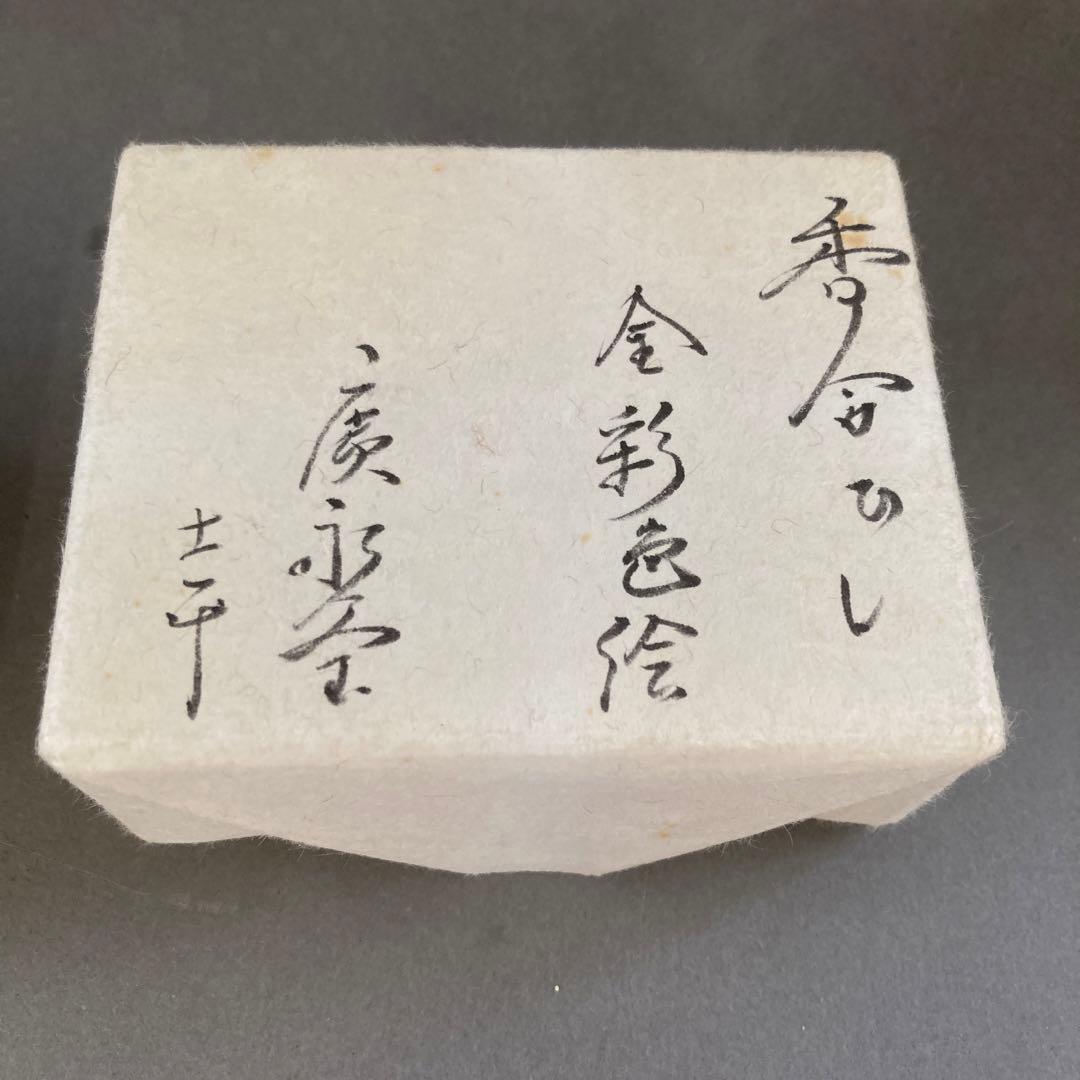 香合ひし
金彩色絵
廣永窯
土平